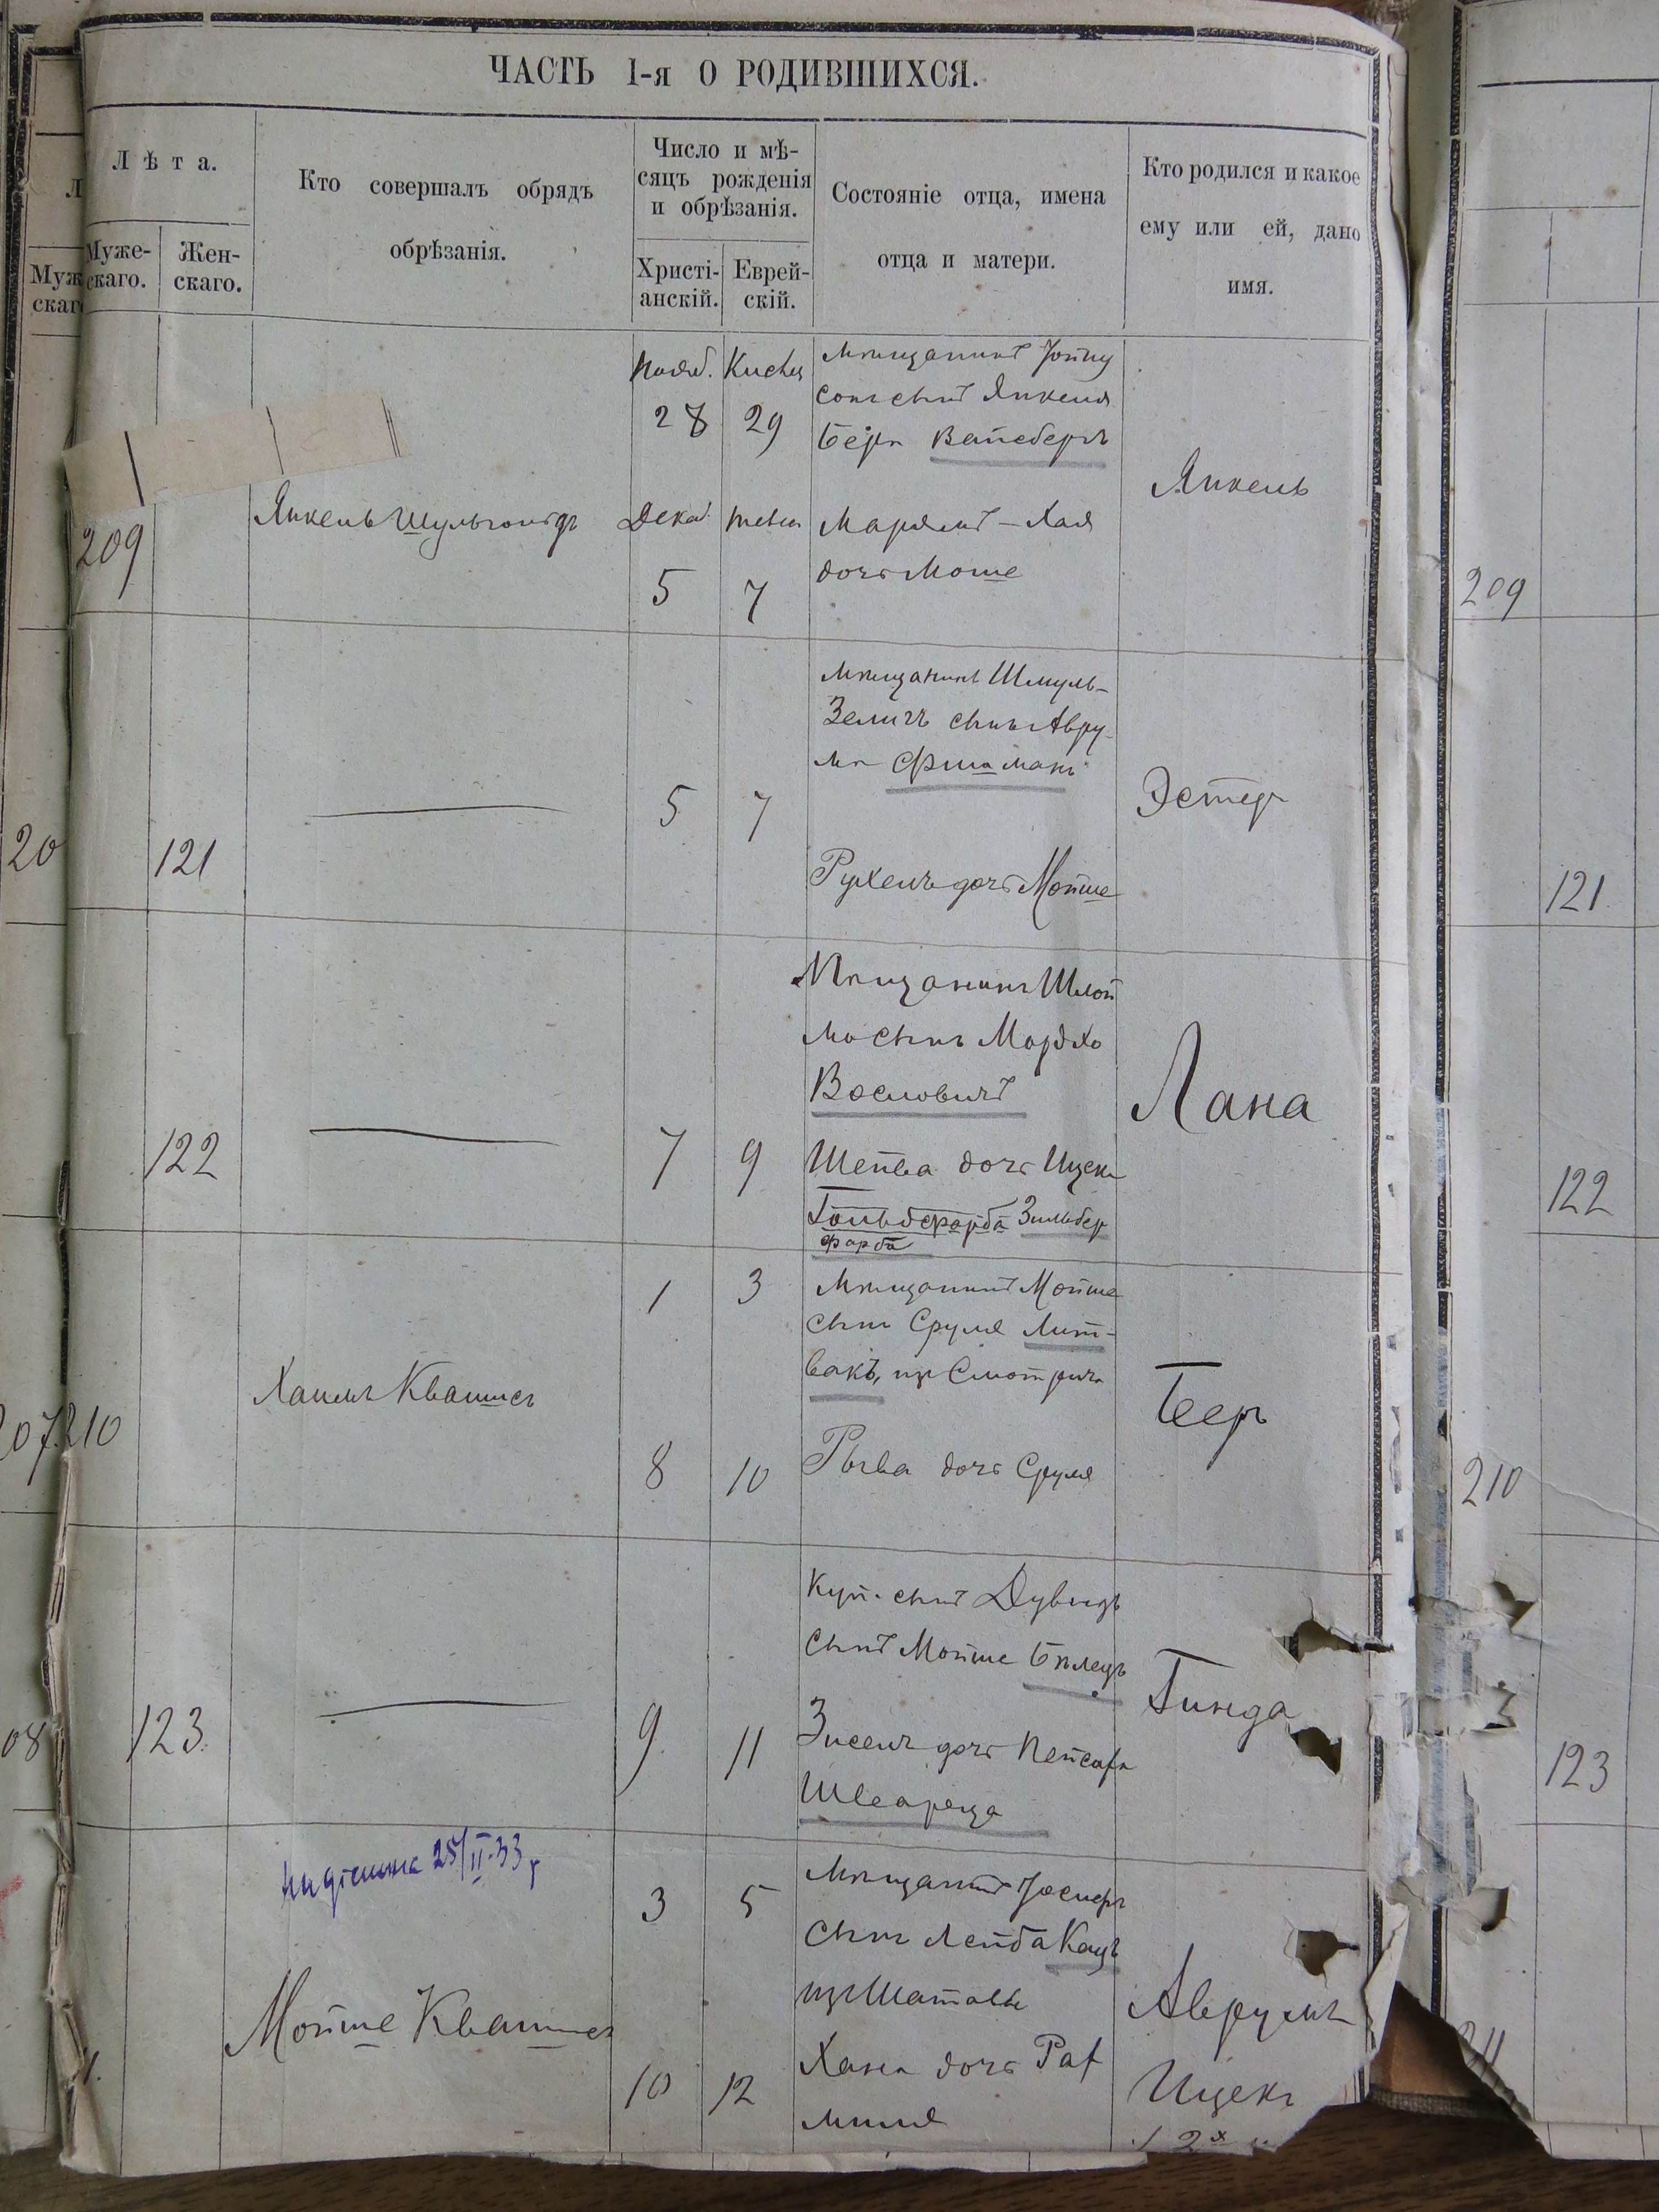 ЧАСТЬ 1-я О РОДИВШИХСЯ.
Лѣта.
Муже-
скаго.
Жен-
скаго.
Кто совершалъ обрядъ
обрѣзанія.
Число и мѣ-
сяцъ рожденія
и обрѣзанія.
Христі-
анскій.
Еврей-
скій.
Состояніе отца, имена
отца и матери.
Кто родился и какое
ему или ей, дано
имя.
209
Янкель
Нояб.
28
29
Декаб.
5
7
Мѣщанинъ
сонъ сынъ Янкеля
Бера Вайсбергъ
Марямъ-Хая
дочь Моше
Янкель
121
5
7
Мѣщанинъ Шмуль-
Зелигъ сынъ Авру-
ма Фишманъ
Рухель дочь Мойше
Эстеръ
122
7
9
Мѣщанинъ Шлой
ма сынъ Мордко
Вословичъ
Шейва дочь Ицека
Гольдфарба Зильбер
фарба
Лана
210
Хаимъ Квашисъ
1
3
8
10
Мѣщанинъ Мойше
сынъ Сруля Лит-
вакъ, изъ Смотрича
Рыва дочь Сруля
Беръ
123
9
11
Куп. сынъ Дувидъ
сынъ Мойше Бѣлецъ
Зиселъ дочь Пейсаха
Шварца
Гинда
25/II-33 г
Мойше Квашисъ
3
5
10
12
Мѣщанинъ Іосифъ
сынъ Лейба Кацъ
изъ Шатавы
Хана дочь Раф
миля
Аврумъ
Ицекъ
Муж
скаг
20
207
08
209
121
122
210
123